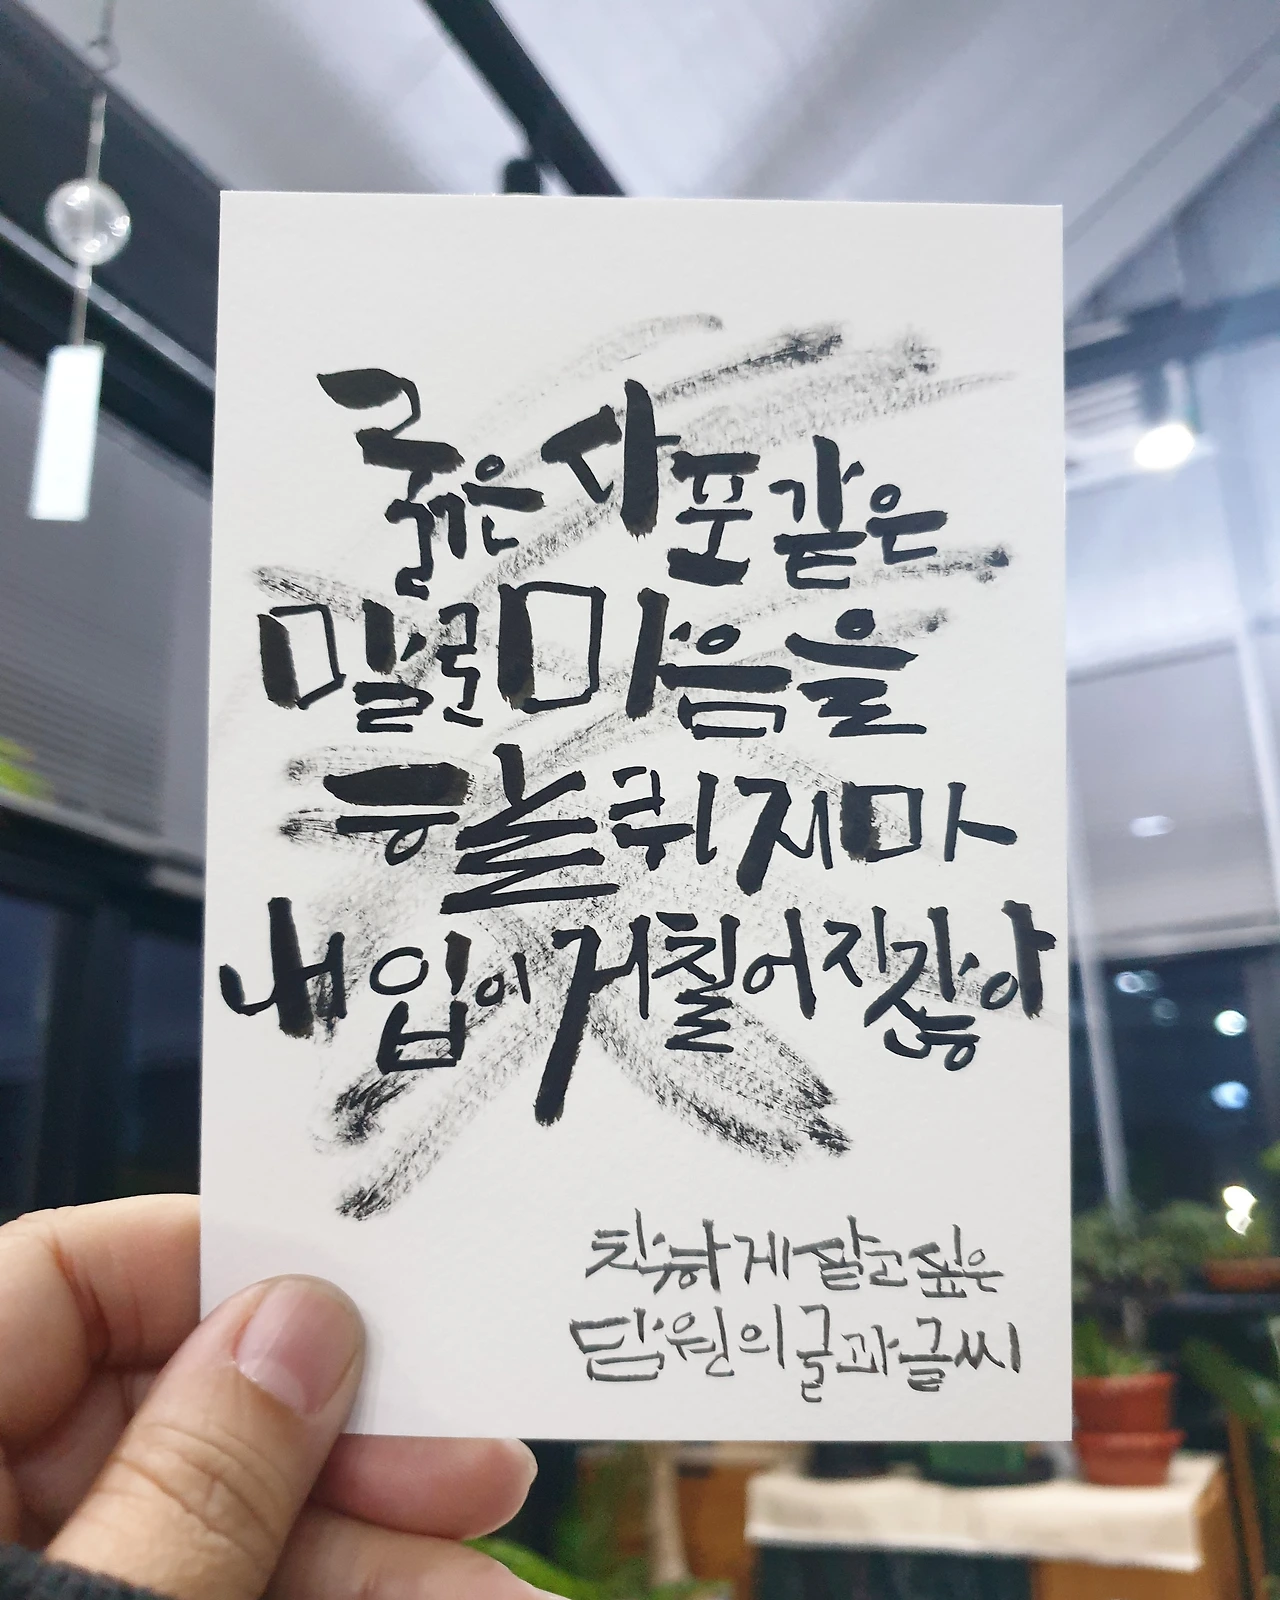 굵은 사포같은
말로 마음을
등 할퀴지마
내 입이 거칠어 진걸 잖아
착하게 살고 싶은
담원의 글과 글씨